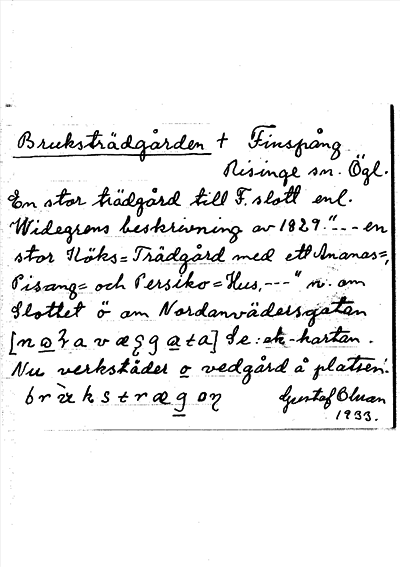 Bruksträdgården + Finspång
Risinge sn. Ögl.
En stor trädgård till F. slott enl.
Widegrens beskrivning av 1829: "--- en
stor Köks=Trädgård med ett Ananas=,
Pisang= och Persiko=Hus, ---" n. om
Slottet ö om Nordanvädersgatan
Se: ek-kartan.
Nu verkstäder o vedgård å platsen.
Gustaf Bluan
1933.